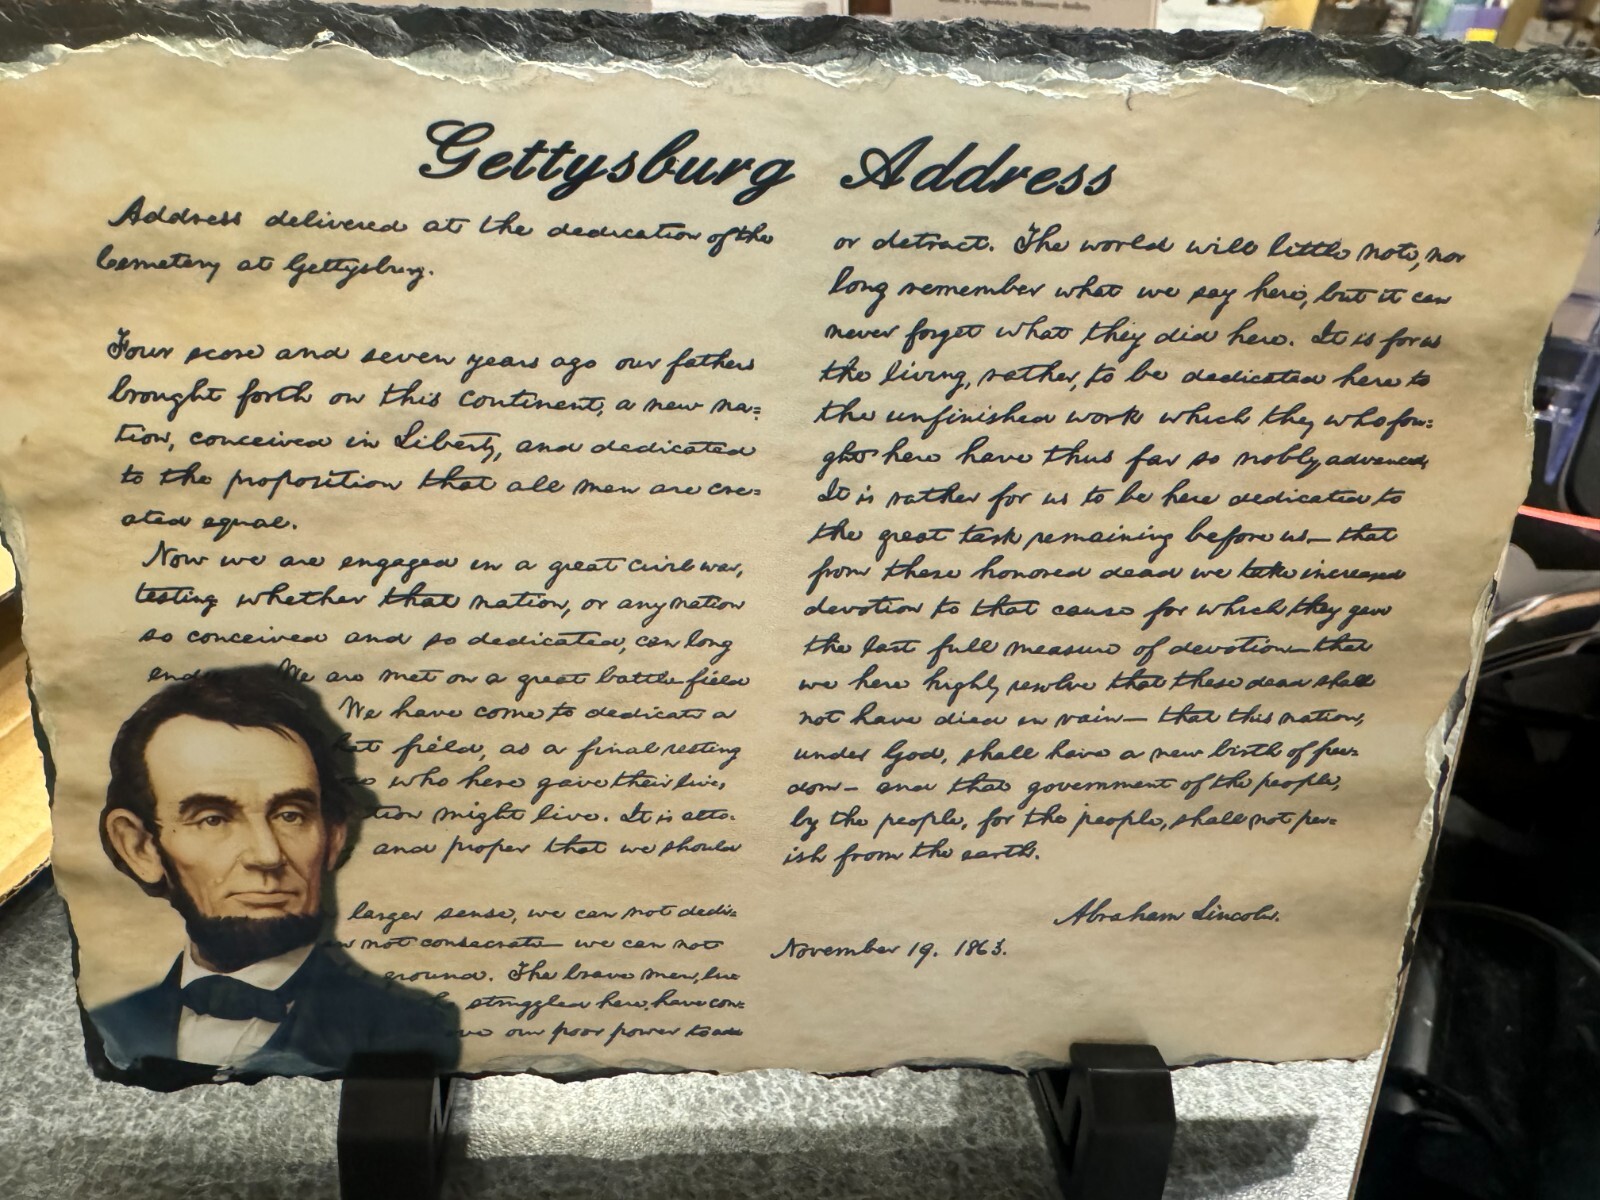 Gettysburg Address
Address delivered at the dedication of the
Cemetery at Gettysburg.
Four score and seven years ago our fathers
brought forth on this continent, a new na=
tion, conceived in Liberty, and dedicated
to the proposition that all men are cre=
ated equal.
Now we are engaged in a great civil war,
testing whether that nation, or any nation
so conceived and so dedicated, can long
We are met on a great battle-field
We have come to dedicate a
field, as a final resting
who here gave their lives,
might live. It is alto-
and proper that we should
larger sense, we can not dedi=
not consecrate— we can not
ground. The brave men, liv
struggled here, have con=
our poor power to add
or detract. The world will little note, nor
long remember what we say here, but it can
never forget what they did here. It is for us
the living, rather, to be dedicated here to
the unfinished work which they who fou=
ght here have thus far so nobly advanced.
It is rather for us to be here dedicated to
the great task remaining before us— that
from these honored dead we take increased
devotion to that cause for which they gave
the last full measure of devotion— that
we here highly resolve that these dead shall
not have died in vain— that this nation,
under God, shall have a new birth of free=
dom— and that government of the people,
by the people, for the people, shall not per=
ish from the earth.
Abraham Lincoln.
November 19. 1863.